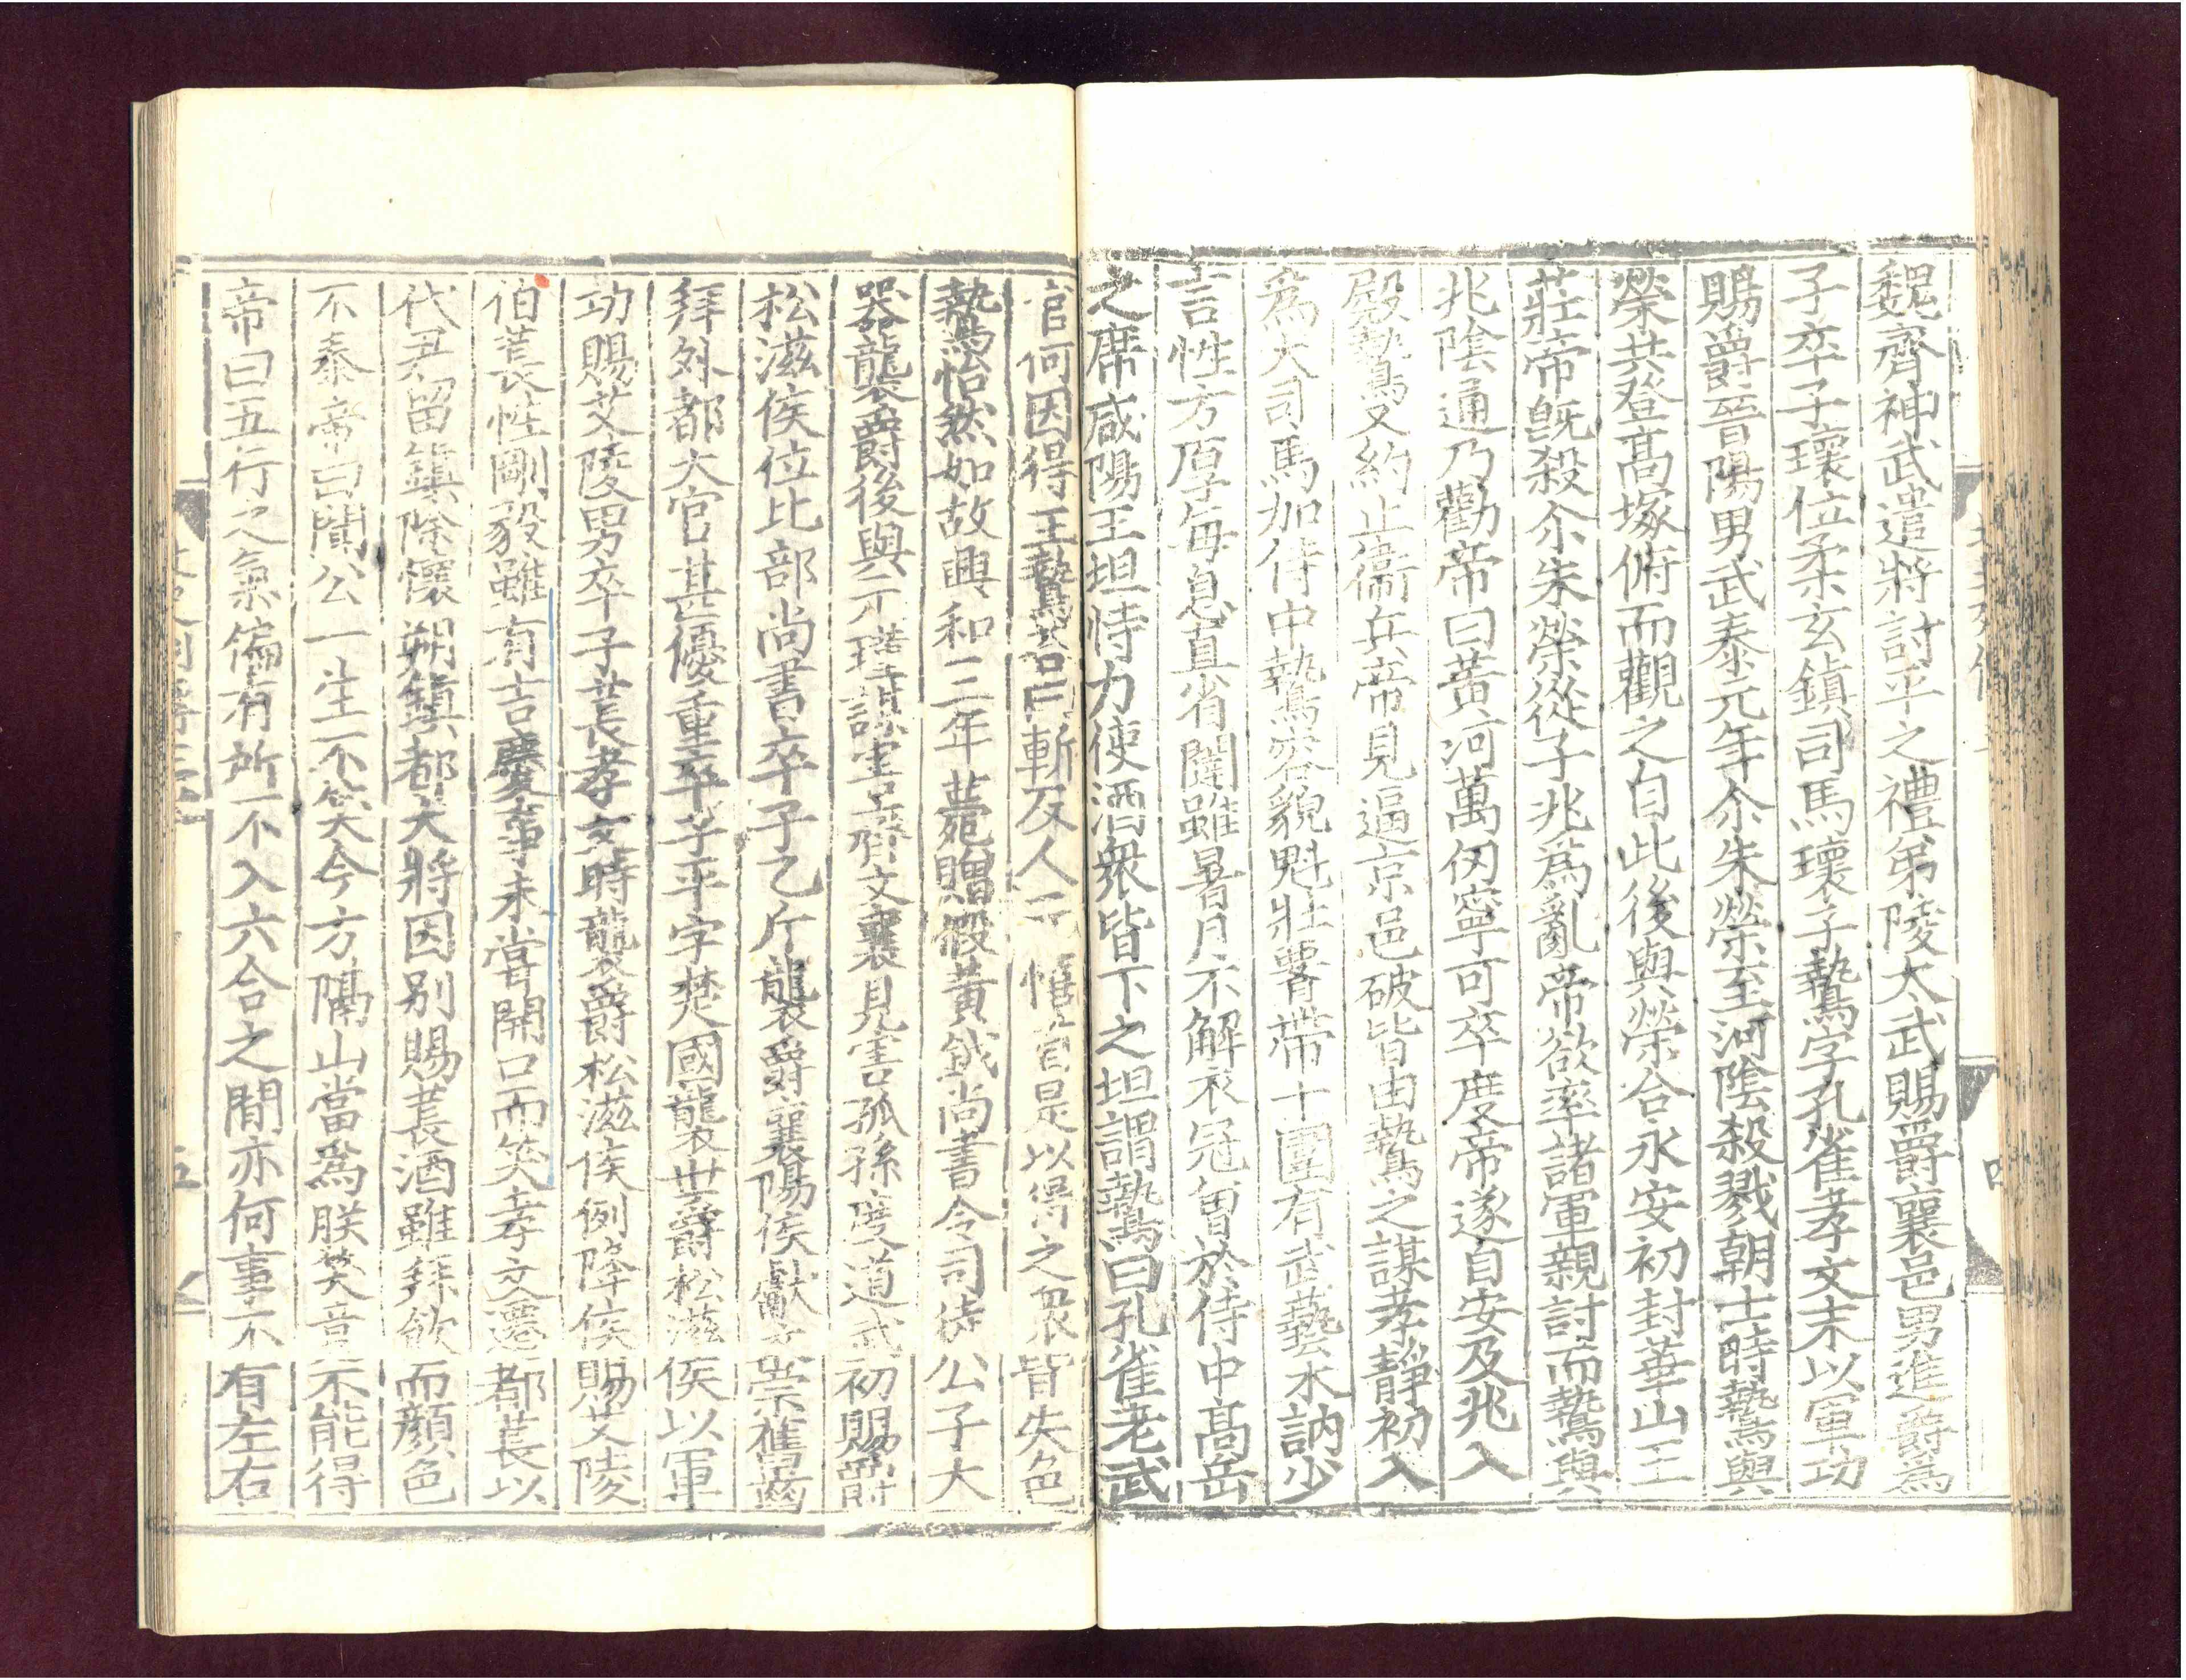 魏齊神武遣將討平之禮弟陵太武賜爵襄邑男進爵爲
子卒子瓌位柔玄鎮司馬瓌子鷙字孔雀孝文末以軍功
賜爵晉陽男武泰元年尒朱榮至河陰殺戮朝士時鷙與
榮共登高塚俯而觀之自此後與榮合永安初封華山王
莊帝旣殺尒朱榮從子兆爲亂帝欲率諸軍親討而鷙與
兆陰通乃勸帝曰黃河萬仞寧可卒度帝遂自安及兆入
殿鷙又約止衞兵帝見逼京邑破皆由鷙之謀孝靜初入
爲大司馬加侍中鷙容貌魁壯署帶十圍有武藝木訥少
言性方厚每息直省闥雖暑月不解衣冠曾於侍中高岳
之席咸陽王坦恃力使酒衆皆下之坦謂鷙曰孔雀老武
官何因得王鷙荅曰斬反人 是以得之衆皆失色
鷙怡然如故興和三年薨贈假黃鉞尚書令司徒公子大
器襲爵後與元瑾謀害 文襄見害孤孫度道武初賜爵
松滋侯位比部尚書卒子乙斤襲爵襄陽侯獻文崇舊齒
拜外都大官甚優重卒子平字楚國襲世爵松滋侯以軍
功賜艾陵男卒子萇孝文時襲爵松滋侯例降侯賜艾陵
伯萇性剛毅雖有吉慶事未嘗開口而笑孝文遷都萇以
代尹留鎮除懷朔鎮都大將因別賜萇酒雖拜飲而顏色
不泰帝曰聞公一生不笑今方隔山當爲朕笑竟不能得
帝曰五行之氣偏有所不入六合之間亦何事不有左右
五